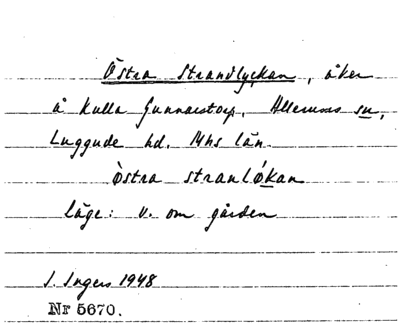 Östra Strandlyckan, åker
å Kulla Gunnarstorp, Allerums sn,
Luggude hd. Mhs län.
östra stranlókan
läge: v. om gården
I. Ingers 1948
Nr 5670.